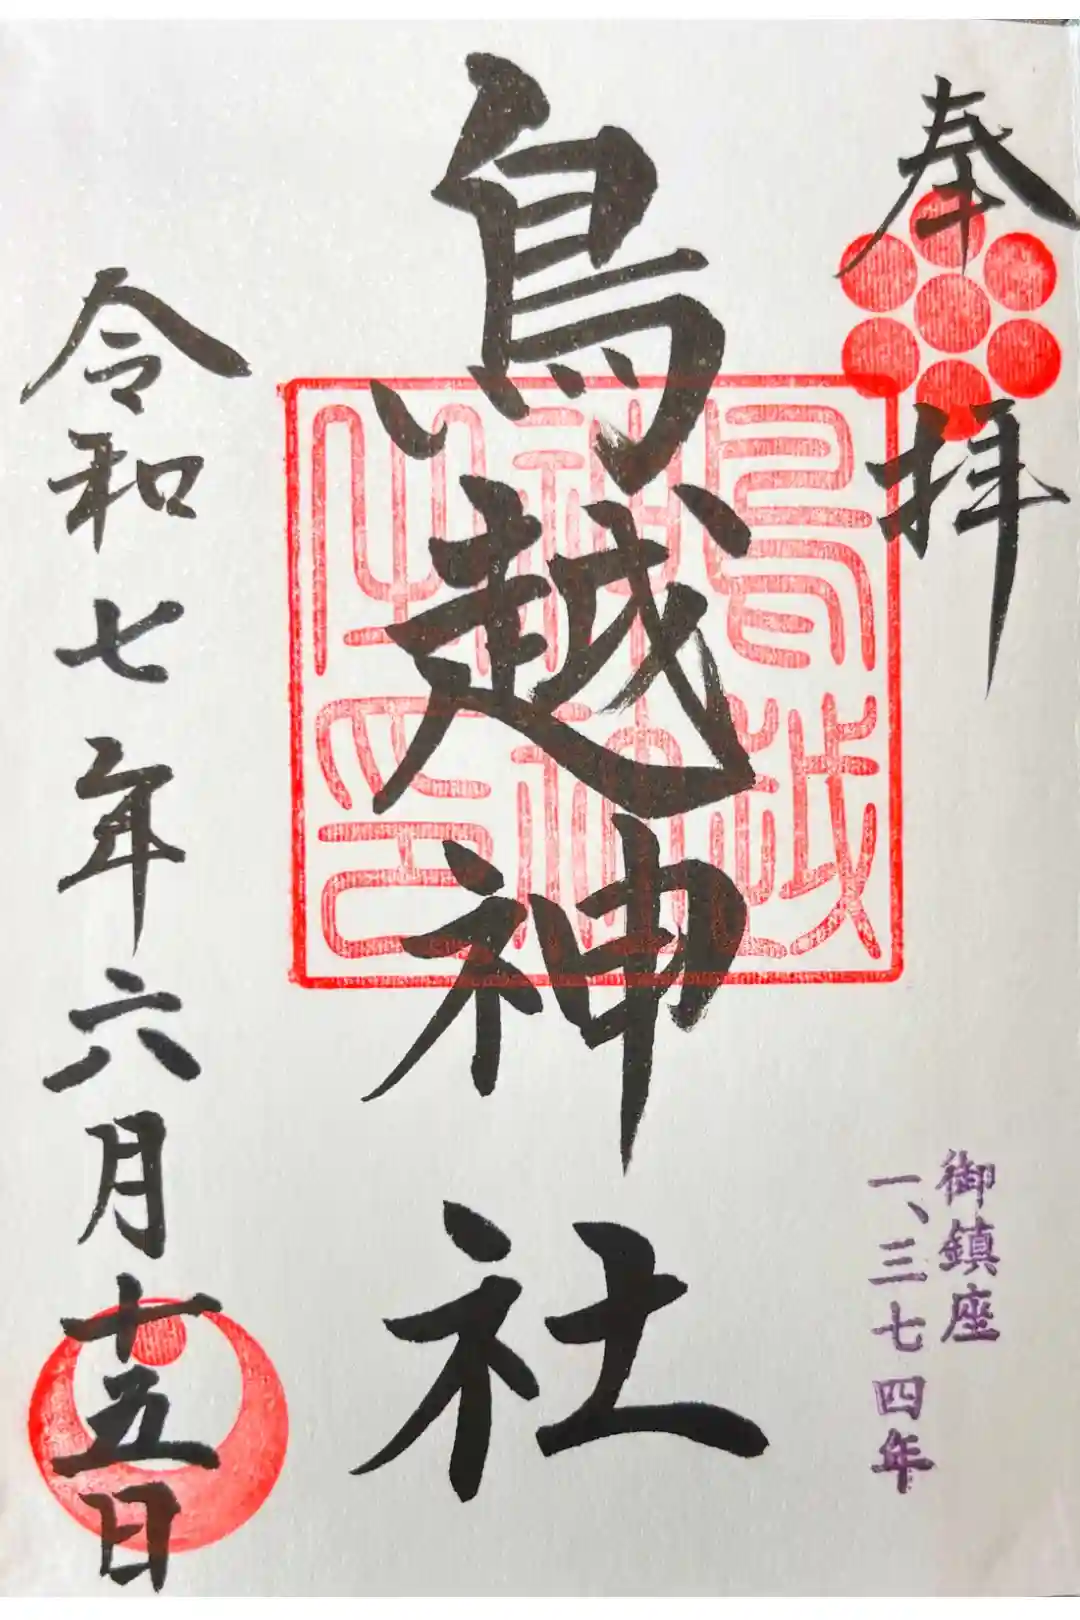 奉拝
鳥越神社
鳥越神社神印
令和七年六月十五日
御鎮座
一、三七四年